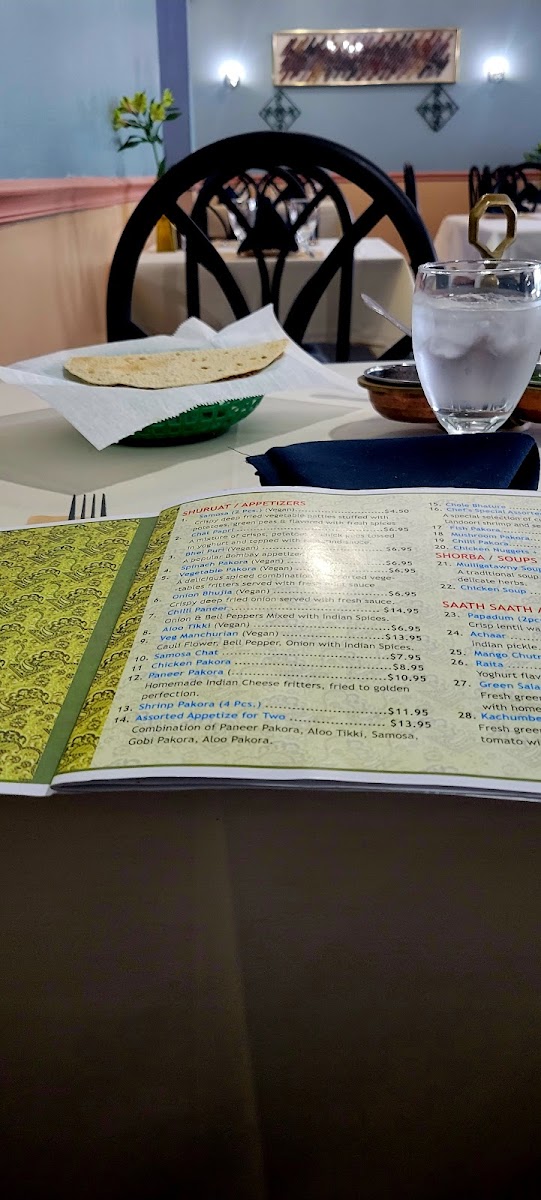 SHURUAT / APPETIZERS
1. Samosa (2 Pcs.) (Vegan) $4.50
Crispy deep fried vegetable patties stuffed with
potatoes, green peas & flavored with fresh spices
2. Chat Papri $6.95
A mixture of crisps, potatoes
in yoghurt and topped with
3. Bhel Puri (Vegan) $6.95
A popular Bombay appetizer
4. Spinach Pakora (Vegan) $6.95
5. Vegetable Pakora (Vegan) $6.95
A delicious spiced combination vege-
tables fritters served with fresh sauce
6. Onion Bhujia (Vegan) $6.95
Crispy deep fried onion served with fresh sauce
7. Chilli Paneer $14.95
Onion & Bell Peppers Mixed with Indian Spices.
8. Aloo Tikki (Vegan) $6.95
9. Veg Manchurian (Vegan) $13.95
Cauli Flower, Bell Pepper, Onion with Indian Spices.
10. Samosa Chat $7.95
11 Chicken Pakora $8.95
12. Paneer Pakora ( $10.95
Homemade Indian Cheese fritters, fried to golden
perfection.
13. Shrimp Pakora (4 Pcs.) $11.95
14. Assorted Appetize for Two $13.95
Combination of Paneer Pakora, Aloo Tikki, Samosa,
Gobi Pakora, Aloo Pakora.
15. Chole Bhatura
16. Chef's Special Assor
A special selection of c
tandoori shrimp and se
17 Fish Pakora
18 Mushroom Pakora
19 Chilli Pakora
20. Chicken Nuggets
SHORBA / SOUPS
21. Mulligatawny Soup
A traditional soup
delicate herbs.
22. Chicken Soup
SAATH SAATH /
23. Papadum (2pc
Crisp lentil wa
24. Achaar
Indian pickle
25. Mango Chutn
26. Raita
Yoghurt flav
27. Green Sala
Fresh gree
with home
28. Kachumbe
Fresh gree
tomato wi